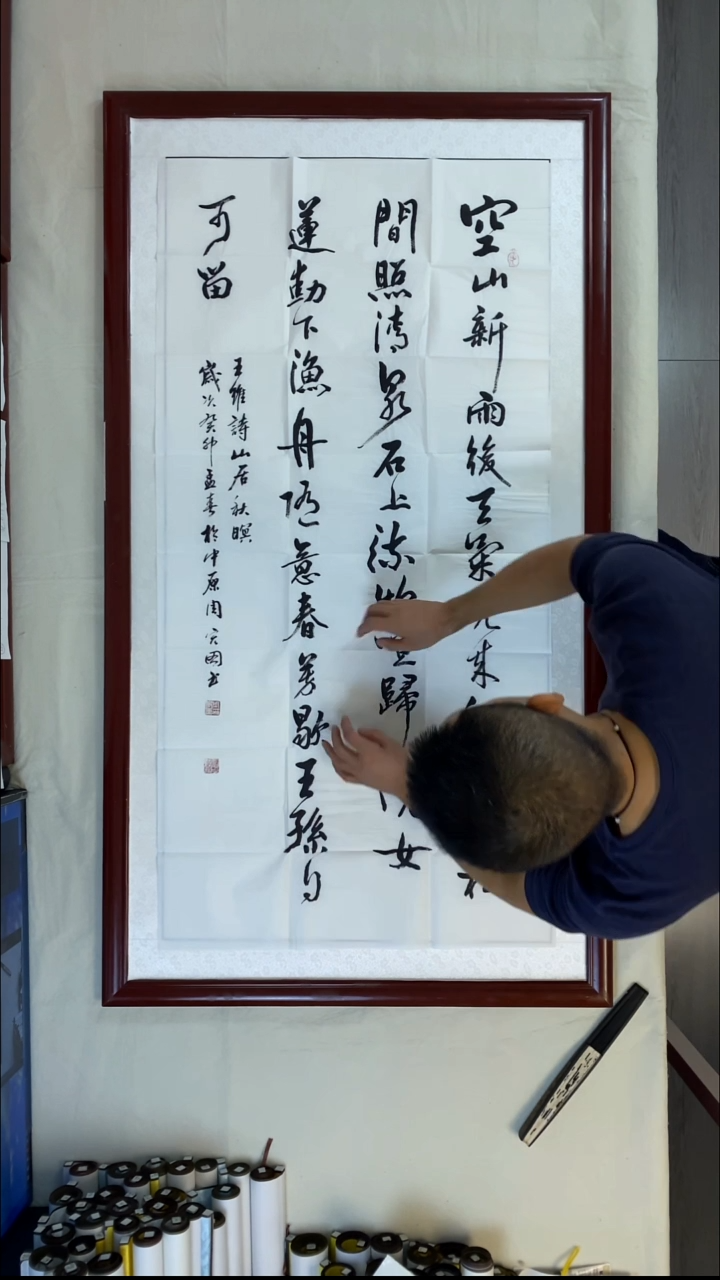 空山新雨後天氣晚來
間照清泉石上流竹喧歸浣女
蓮動下漁舟隨意春芳歇王孫自
可留
王維詩山居秋暝
歲次癸卯孟春於中原周国书